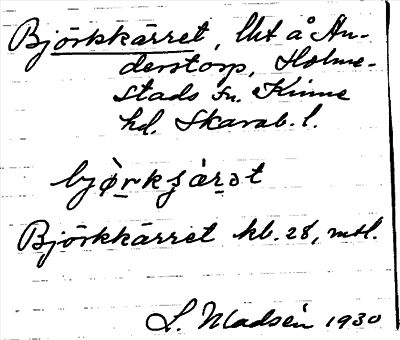 Björkkärret, lht å An-
derstorp, Holme-
stads sn. Kinne
hd. Skarab. l.
bjø̀rkʂærət
Björkkärret kb. 28, mtl.
L. Madsén 1930